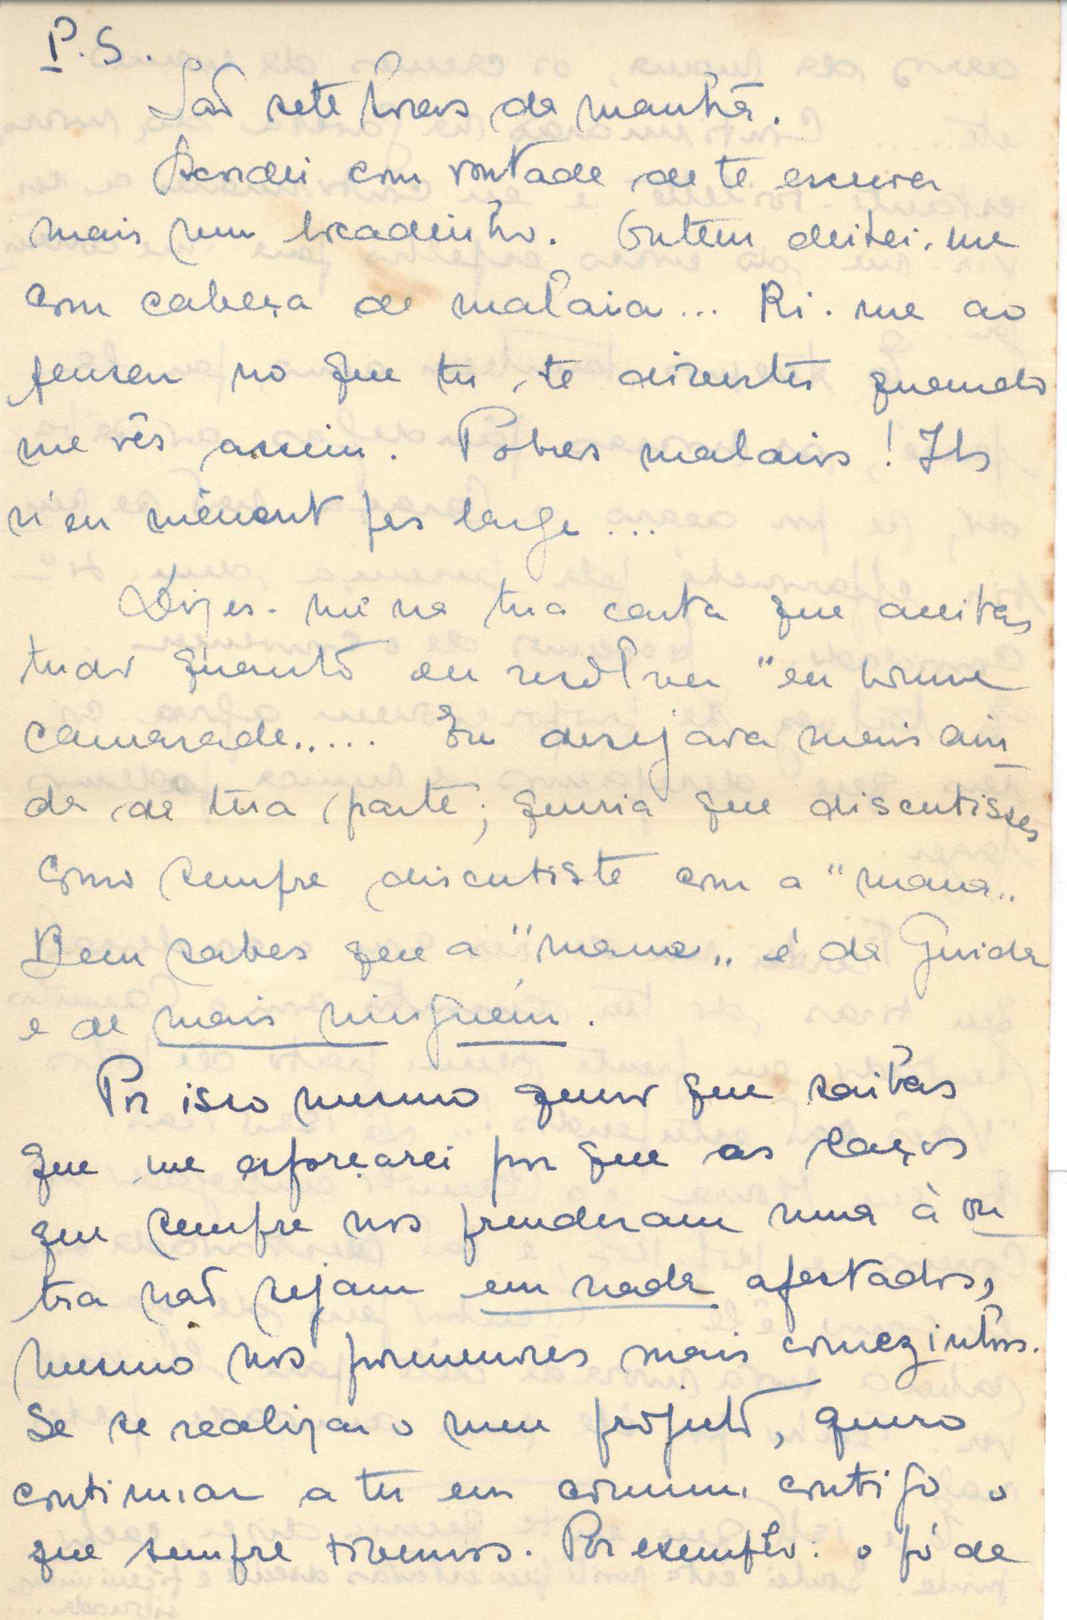 P.S.
São sete horas da manhã.
Acordei com vontade de te escrever
mais um bocadinho. Ontem deitei-me
com cabeça de malaia... Ri-me ao
pensar no que tu te divertes quando
me vês assim. Pobres malaios! Ils
n'en mènent pas large...
Dizes-me na tua carta que aceitas
tudo quanto eu resolver "en bonne
camarade"... Eu desejava mais ain
da de tua parte; queria que discutisses
como sempre discutiste com a "mana"
Bem sabes que a "mana" é da Guida
e de mais ninguém.
Por isso mesmo quero que saibas
que me esforçarei por que os laços
que sempre nos prenderam uma à ou
tra não sejam em nada afectados,
mesmo nos pormenores mais comezinhos.
Se se realizar o meu projecto, quero
continuar a ter em comum contigo o
que sempre tivemos. Por exemplo: o pó de